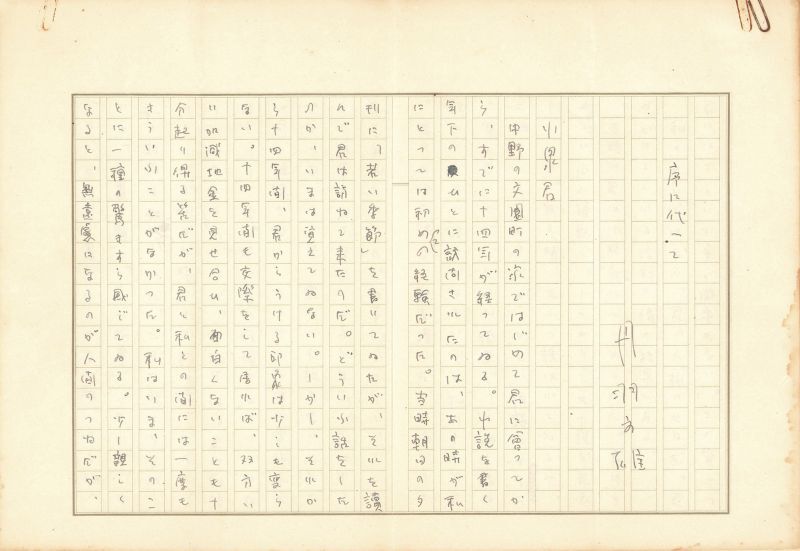 序に代って
丹羽文雄
小泉君
中野の文園町の家ではじめて君に會ってか
ら、すでに十四年が経ってゐる。小説を書く
年下のひとに訪問されたのは、あの時が私
にとっては初めての経験だった。当時朝日の夕
刊に、「若い季節」を書いてゐたが、それを讀
んで君は訪ねて来たのだ。どういふ話をした
のか、いまは覚えてゐない。しかし、それか
ら十四年間、君からうける印象は少しも変ら
ない。十四年間も交際をして居れば、双方い
い加減地金を見せ合ひ、面白くないことも十
分起り得る筈だが、君と私との間には一度も
さういふことがなかった。私はいま、そのこ
とに一種の驚きすら感じてゐる。少し親しく
なると、無遠慮になるのが人間のつねだが、